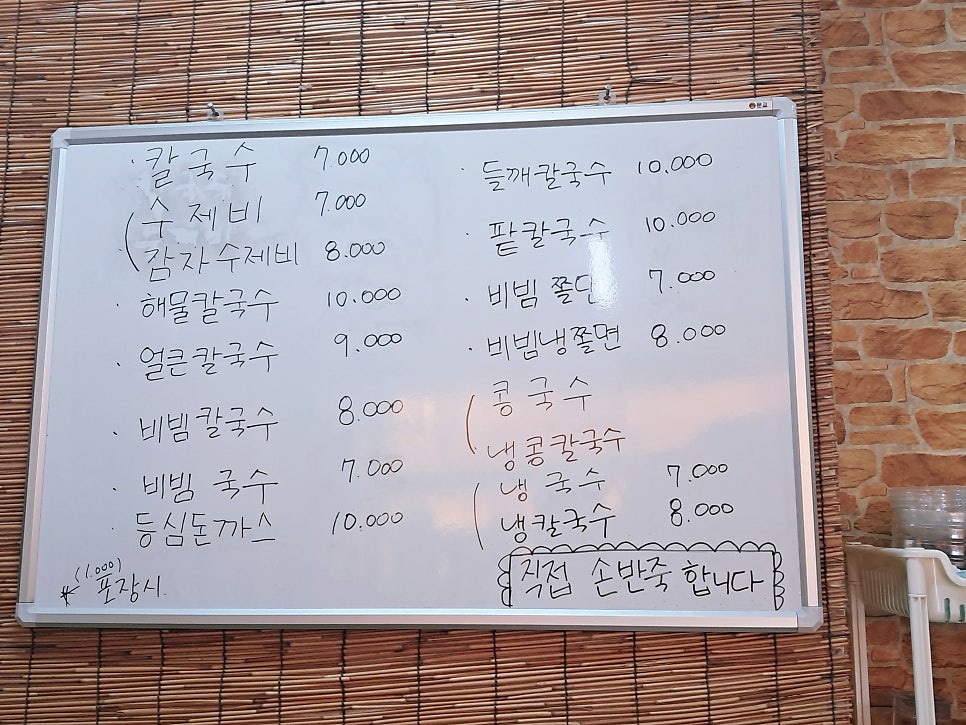 문교
· 칼국수 7.000
수제비 7.000
감자수제비 8.000
· 해물칼국수 10.000
· 얼큰칼국수 9.000
· 비빔칼국수 8.000
· 비빔 국수 7.000
· 등심돈까스 10.000
(1.000)
* 포장시
· 들깨칼국수 10.000
· 팥칼국수 10.000
· 비빔 쫄면 7.000
· 비빔냉쫄면 8.000
콩국수
냉콩칼국수
냉국수 7.000
냉칼국수 8.000
직접 손반죽 합니다